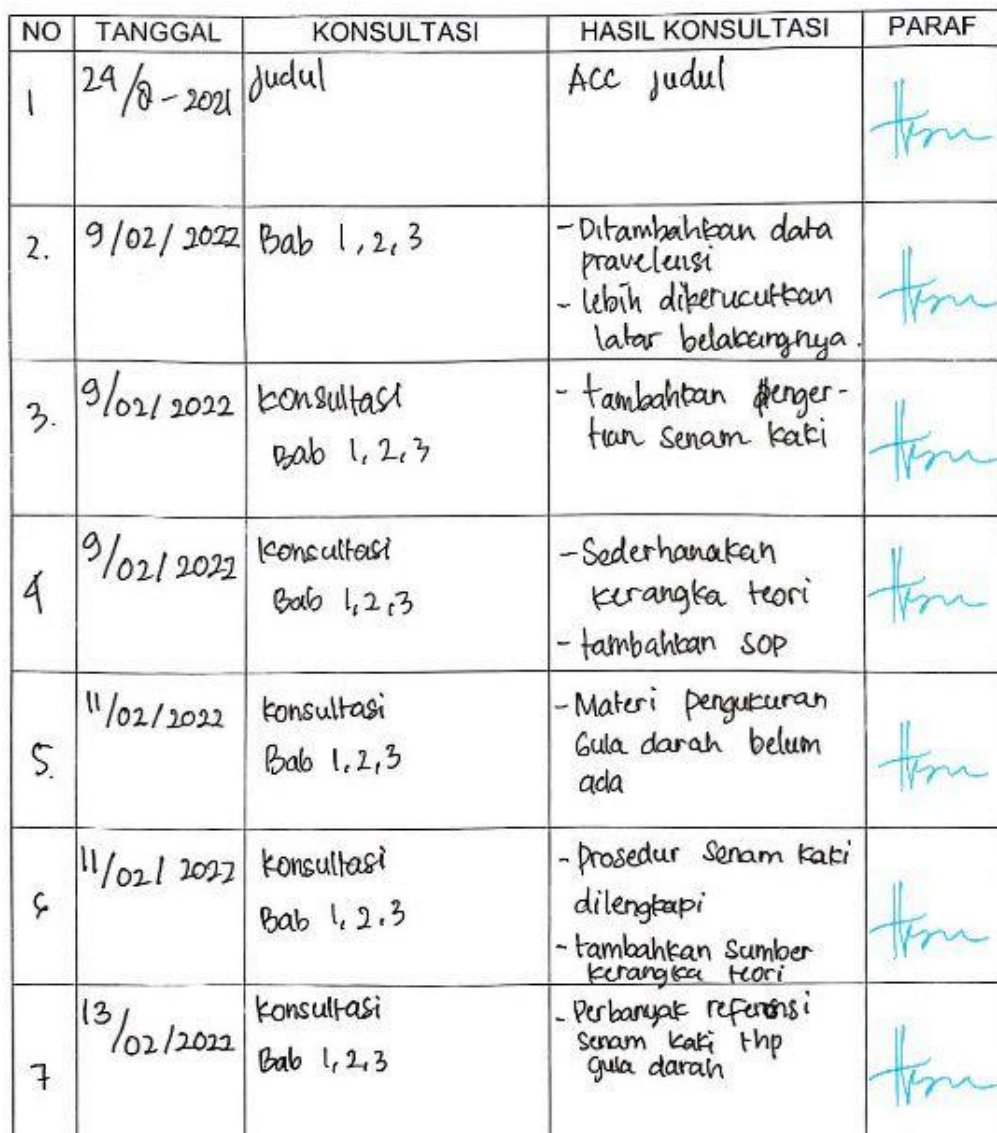 NO TANGGAL KONSULTASI HASIL KONSULTASI PARAF
1 24/8-2021 Judul ACC Judul
2. 9/02/2022 Bab 1, 2, 3 - Ditambahkan data
pravelensi
- lebih dikerucutkan
latar belakangnya.
3. 9/02/2022 konsultasi - tambahkan penger-
Bab 1, 2, 3 tian senam kaki
4 9/02/2022 konsultasi - Sederhanakan
Bab 1, 2, 3 kerangka teori
- tambahkan SOP
5. 11/02/2022 konsultasi - Materi pengukuran
Bab 1, 2, 3 Gula darah belum
ada
6 11/02/2022 konsultasi - Prosedur Senam kaki
Bab 1, 2, 3 dilengkapi
- tambahkan Sumber
kerangka teori
7 13/02/2022 konsultasi - Perbanyak referensi
Bab 1, 2, 3 senam kaki thp
gula darah